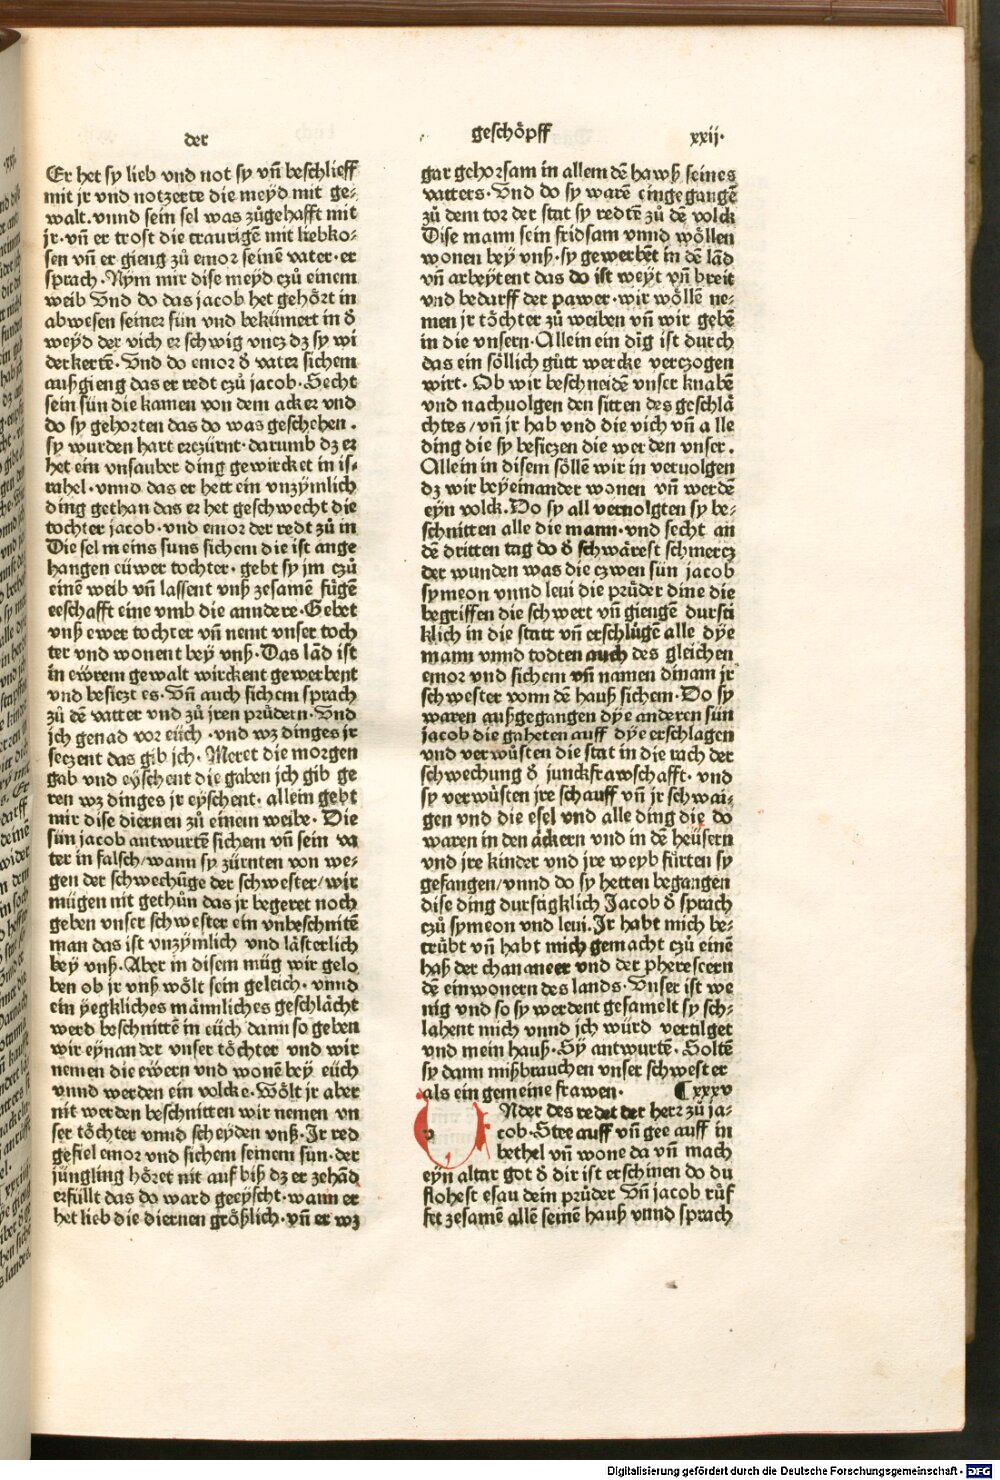 der
geschöpff xxij·
Er het sy lieb vnd not sy vñ beschlieff
mit jr vnd notzerte die meyd mit ge⸗
walt. vnnd sein sel was zůgehafft mit
jr· vñ er trost die traurigẽ mit liebko⸗
sen vñ er gieng zů emor seinẽ vater· er
sprach· Nym mir dise meyd czů einem
weib Vnd do das jacob het gehört in
abwesen seiner sün vnd bekümert in ð
weyd der vich er schwig vncz dz sy wi
derkertẽ· Vnd do emor ð vater sichem
außgieng das er redt czů jacob· Secht
sein sün die kamen von dem acker vnd
do sy gehorten das do was geschehen.
sy wurden hart erczürnt· darumb dz er
het ein vnsauber ding gewircket in is⸗
rahel· vnnd das er hett ein vnzymlich
ding gethan das er het geschwecht die
tochter jacob· vnd emor der redt zů in
Die sel meins suns sichem die ist ange
hangen eüwer tochter· gebt sy jm czů
einẽ weib vñ lassent vnß zesamẽ fügẽ
eeschafft eine vmb die anndere· Gebet
vnß ewer tochter vñ nemt vnser toch
ter vnd wonent bey vnß· Das lãd ist
in ewrem gewalt wirckent gewerbent
vnd besiczt es· Vñ auch sichem sprach
zů dẽ vatter vnd zů jren průdern· Vnd
jch genad vor eüch· vnd wz dinges jr
seczent das gib jch· Meret die morgen
gab vnd eyschent die gaben jch gib ge
ren wz dinges jr eyschent· allein gebt
mir dise diernen zů einem weibe· Die
sün jacob antwurtẽ sichem vñ sein va
ter in falsch/ wann sy zürnten von we⸗
gen der schwechũge der schwester/ wir
mügen nit gethůn das jr begeret noch
geben vnser schwester ein vnbeschnitẽ
man das ist vnzymlich vnd lästerlich
bey vnß· Aber in disem müg wir gelo
ben ob jr vnß wölt sein geleich· vnnd
ein yegkliches männliches geschlächt
werd beschnittẽ in eüch dann so geben
wir eynander vnser töchter vnd wir
nemen die ewern vnd wonẽ bey eüch
vnnd werden ein volcke· Wölt jr aber
nit werden beschnitten wir nemen vn
ser töchter vnnd scheyden vnß· Ir red
gefiel emor vnd sichem seinem sun· der
jüngling höret nit auf biß dz er zehãd
erfüllt das do ward geeyscht· wann er
het lieb die diernen größlich· vñ er wz
gar gehorsam in allem dẽ hawß seines
vatters· Vnd do sy warẽ eingegangẽ
zů dem tor der stat sy redtẽ zů dẽ volck
Dise mann sein fridsam vnnd wöllen
wonen bey vnß· sy gewerbẽt in dẽ lãd
vñ arbeytent das do ist weyt vñ breit
vnd bedarff der pawer· wir wöllẽ ne⸗
men jr töchter zů weiben vñ wir gebẽ
in die vnsern· Allein ein dĩg ist durch
das ein söllich gůtt wercke verczogen
wirt· Ob wir beschneidẽ vnser knabẽ
vnd nachuolgen den sitten des geschlä
chtes/ vñ jr hab vnd die vich vñ alle
ding die sy besiczen die werden vnser.
Allein in disem söllẽ wir in veruolgen
dz wir beyeinander wonen vñ werdẽ
eyn volck. Do sy all veruolgten sy be⸗
schnitten alle die mann· vnd secht an
dẽ dritten tag do ð schwärest schmercz
der wunden was die czwen sün jacob
symeon vnnd leui die průder dine die
begriffen die schwert vñ giengẽ dursti
klich in die statt vñ erschlůgẽ alle dye
mann vnnd todten auch des gleichen
emor vnd sichem vñ namen dinam jr
schwester vonn dẽ hauß sichem· Do sy
waren außgegangen dye anderen sün
jacob die gaheten auff dye erschlagen
vnd verwůsten die stat in die rach der
schwechung ð junckfrawschafft· vnd
sy verwůsten jre schauff vñ jr schwai⸗
gen vnd die esel vnd alle ding die do
waren in den äckern vnd in dẽ heüsern
vnd jre kinder vnd jre weyb fůrten sy
gefangen/ vnnd do sy hetten begangen
dise ding durstigklich Jacob ð sprach
czů symeon vnd leui. Ir habt mich be⸗
trůbt vñ habt mich gemacht czů einẽ
haß der chananeer vnd der pherescern
dẽ einwonern des lands· Vnser ist we
nig vnd so sy werdent gesamelt sy sch⸗
lahent mich vnnd jch würd vertilget
vnd mein hauß· Sy antwurtẽ· Soltẽ
sy dann mißbrauchen vnser schwester
als ein gemeine frawen· ¶xxxv
VNder des redet der herr zů ja⸗
cob· Stee auff vñ gee auff in
bethel vñ wone da vñ mach
eyn altar got ð dir ist erschinen do du
flohest esau dein průder Vñ jacob růf
fet zesamẽ allẽ seinẽ hauß vnnd sprach
Digitalisierung gefördert durch die Deutsche Forschungsgemeinschaft - DFG